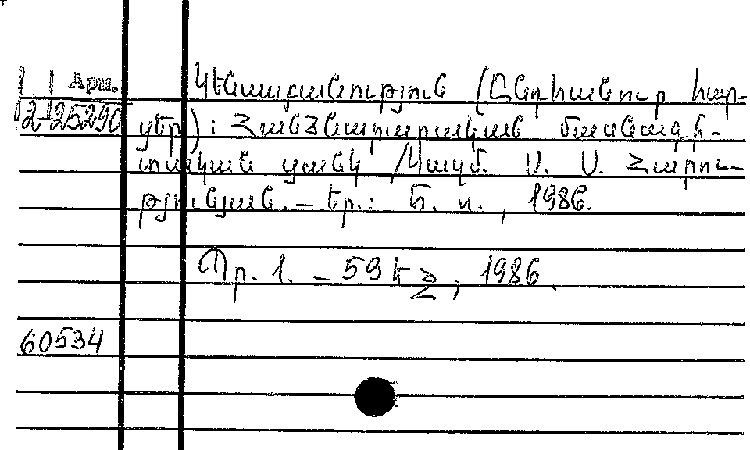 Арш.
2-25290
Կենսաբանություն (Ընդհանուր հար-
ցեր): Հանձնարարական մատենագի-
տական ցանկ / Կազմ. Ս. Ս. Հարու-
թյունյան. — Եր.: Ե. ո., 1986.
Պր. 1. — 59 էջ, 1986.
60534